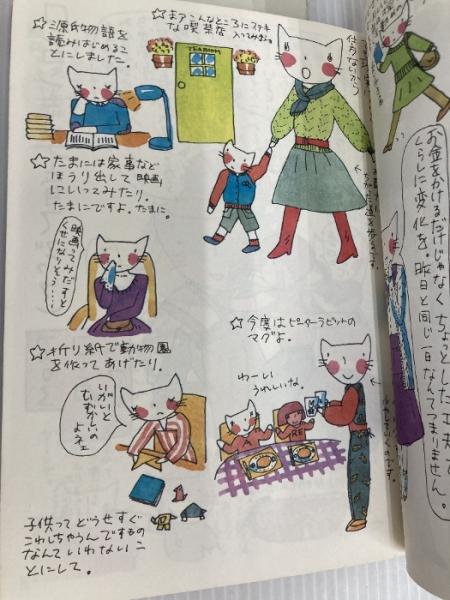 ☆源氏物語を
読みはじめるこ
とにしました。
☆まアこんなところにステキ
な喫茶店
入ってみましょ。
TEAROOM
☆たまには家事など
ほうり出して映画
にいってみたり。
たまにですよ。たまに。
映画ってみだすと
くせになりそう・・・
☆折り紙で動物園
を作ってあげたり。
いがいと
むずかしいの
よネェ
子供ってどうせすぐ
こわしちゃうんですもの
なんていわないこ
とにして。
☆今度はピーターラビットの
マグよ。
わーい
うれしいな。
お金をかけるだけじゃなく
ちょっとした工夫で
くらしに変化を。昨日と同じ
一日なんてつまりません。